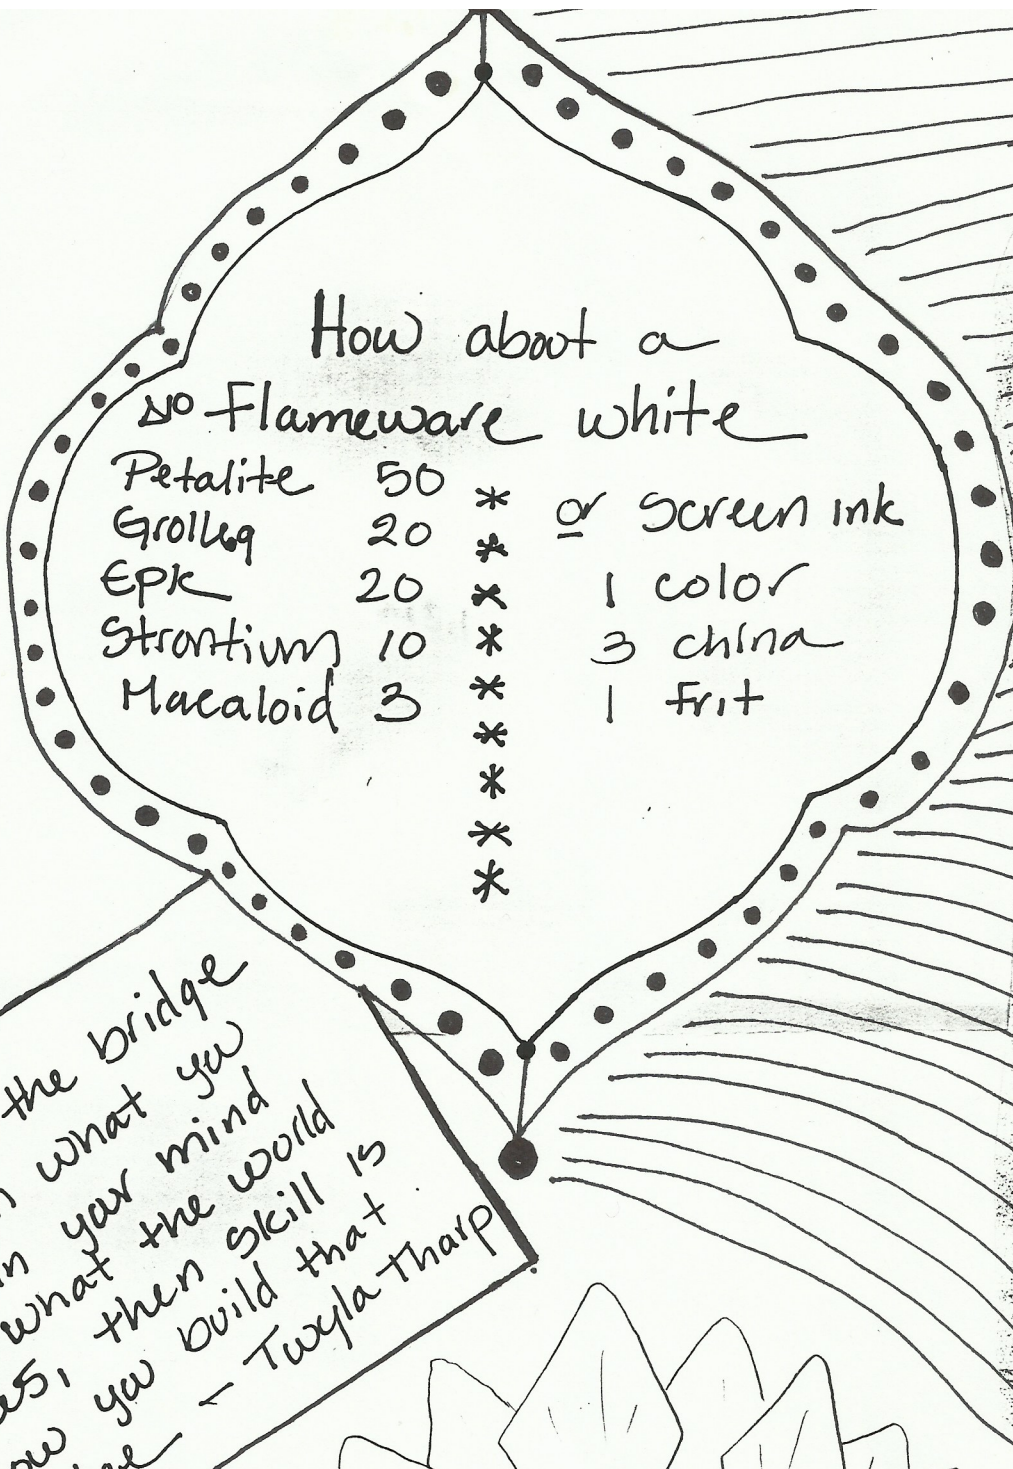 How about a
△10 Flameware white
Petalite 50
Grolleg 20
Epk 20
Strontium 10
Macaloid 3
*
*
*
*
*
*
*
*
*
or screen ink
1 color
3 china
1 Frit
the bridge
what you
in your mind
what the world
then skill is
you build that
- Twyla Tharp